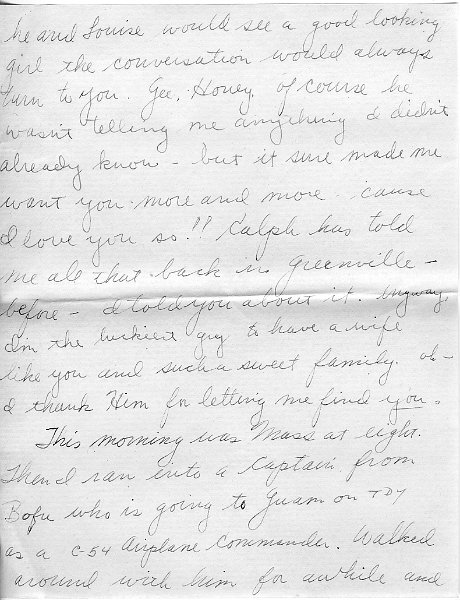 he and Louise would see a good looking
girl the conversation would always
turn to you. Gee, Honey, of course he
wasn't telling me anything I didn't
already know - but it sure made me
want you more and more - cause
I love you so!! Ralph has told
me all that back in Greenville -
before - I told you about it. Anyway,
I'm the luckiest guy to have a wife
like you and such a sweet family. oh -
I thank Him for letting me find you.
This morning was Mass at eight.
Then I ran into a Captain from
who is going to Guam on TDY
as a C-54 Airplane Commander. Walked
around with him for awhile and